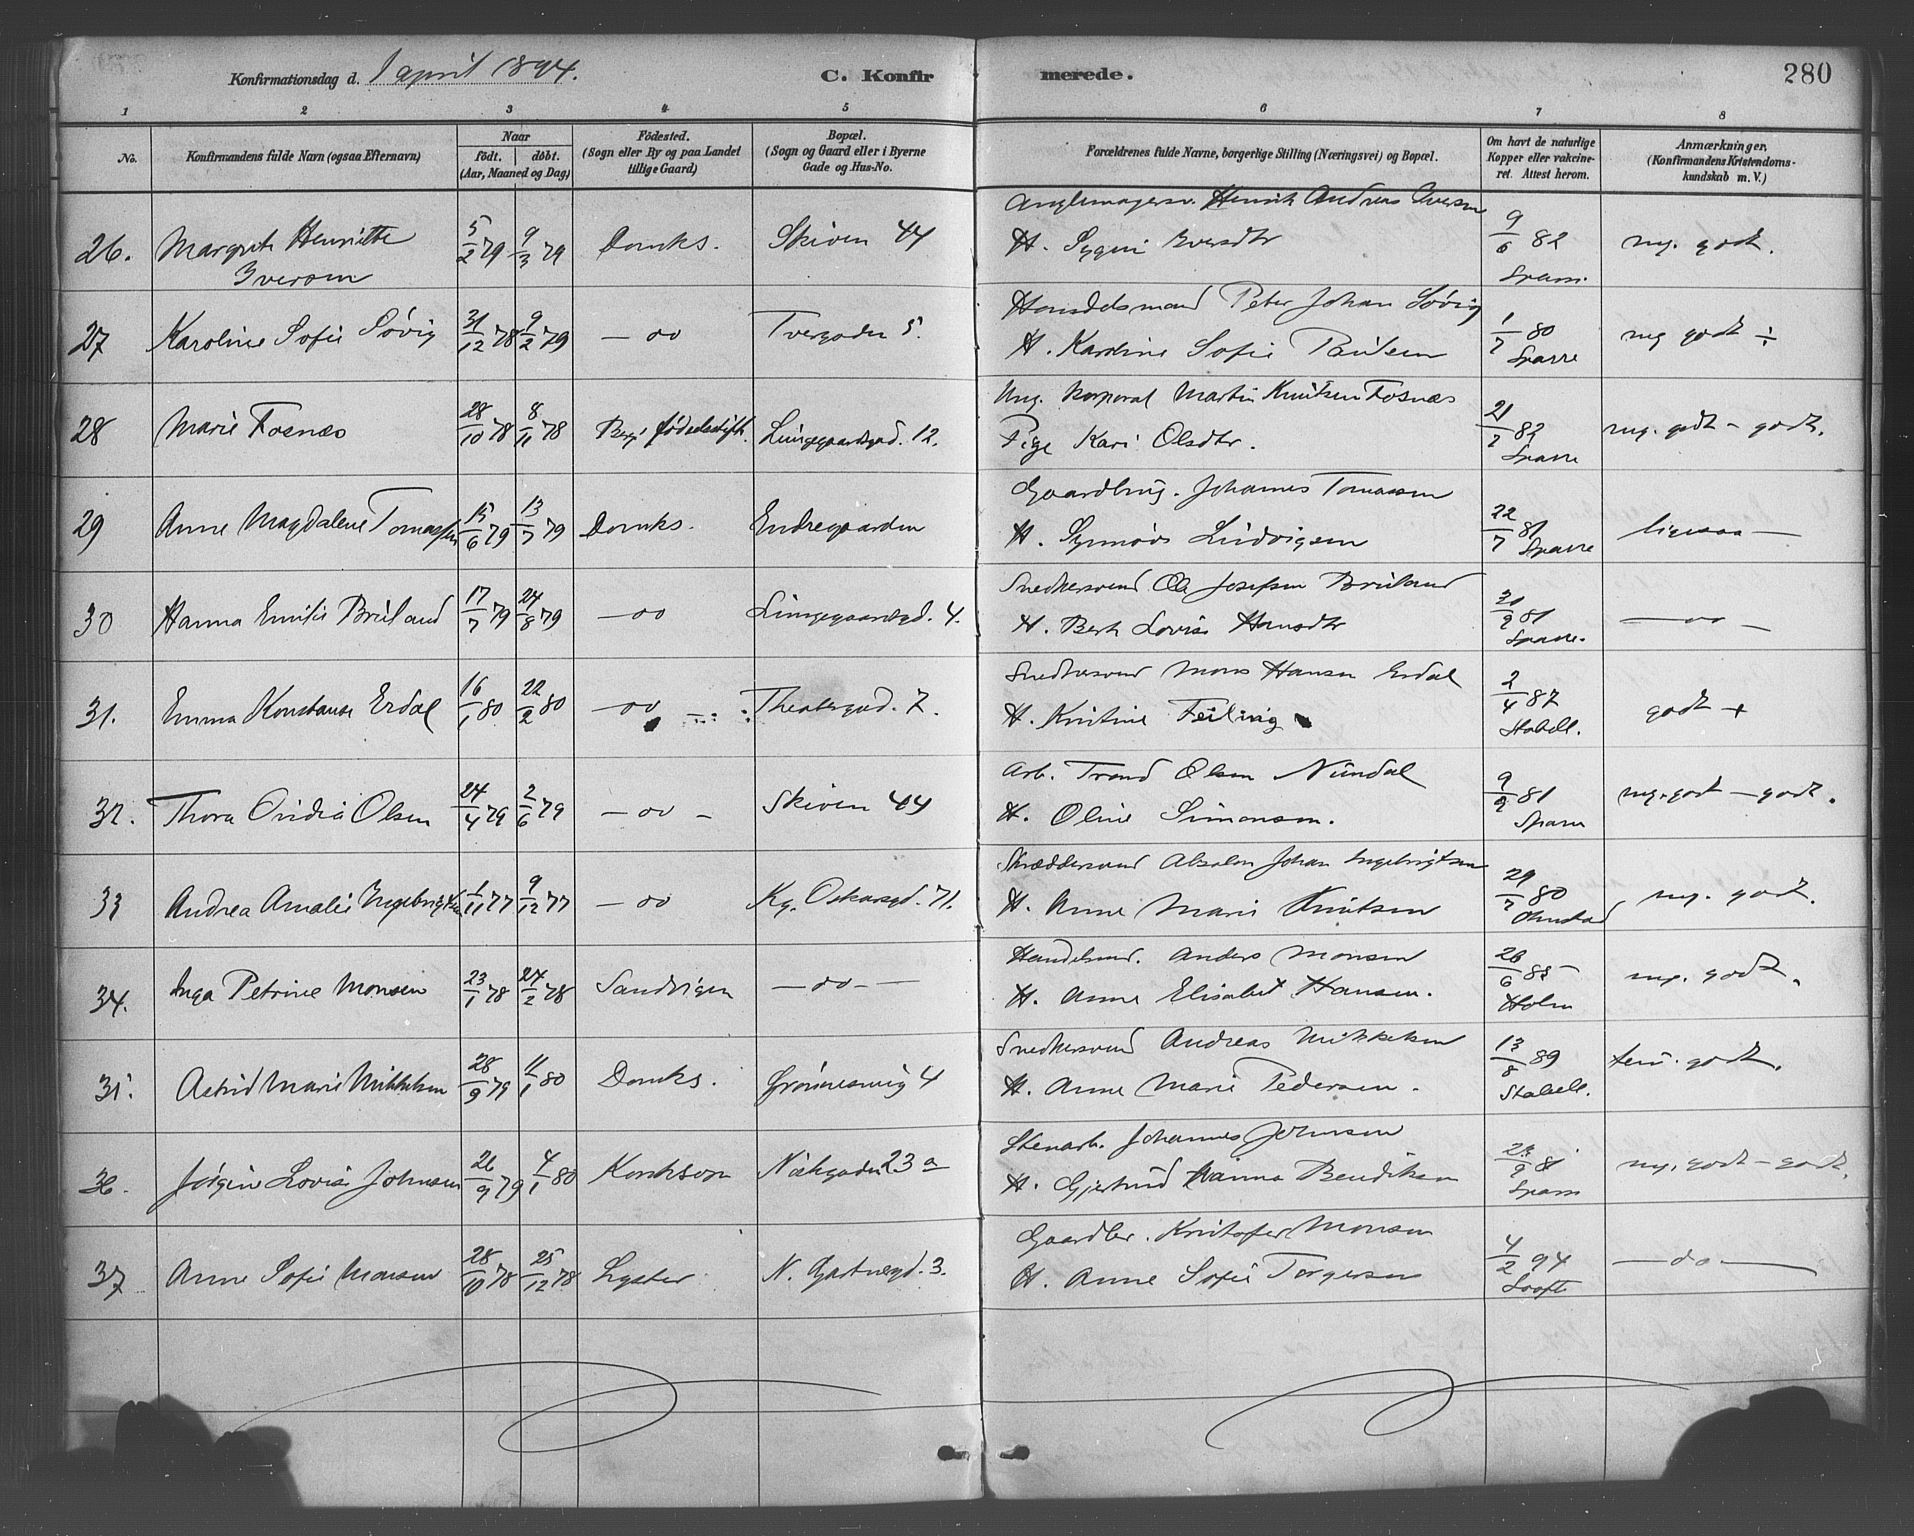 Konfirmationsdag d. 1 april 1894. C. Konfir merede. 280
1 2 3 4 5 6 7 8
No. Konfirmandens fulde Navn (ogsaa Efternavn) Naar födt. döbt. (Aar, Maaned og Dag) Födested. (Sogn eller By og paa Landet tillige Gaard) Bopæl. (Sogn og Gaard eller i Byerne Gade og Hus-No. Forældrenes fulde Navne, borgerlige Stilling (Næringsvei) og Bopæl. Om havt de naturlige Kopper eller vakcineret. Attest herom. Anmærkninger, (Konfirmandens Kristendomskundskab m. V.)
Henrik Andreas Iversen
26. Margrete Henriette Iversen 5/2 79 9/3 79 Domks. Skiven 44 H. Iversdtr 9/6 82 Sparre mg. godt.
Handelsmand Peter Johan Søvig
27 Karoline Sofie Søvig 31/12 78 9/2 79 — oo Tvergaden 5. H. Karoline Sofie Paulsen 1/7 80 Sparre mg godt ÷
Ung. Korporal Martin Knutsen Fosnæs
28 Marie Fosnæs 28/10 78 8/11 78 Berg. fødselsstift. Lungegaardsgd. 12. Pige Kari Olsdtr. 21/7 82 Sparre mg. godt - godt.
Gaardbrug. Johannes Tomassen
29 Anne Magdalene Tomassen 15/6 79 13/7 79 Domks. Endregaarden H. Synnøve Ludvigsen 22/7 81 Sparre ligesaa —
Snedkersvend Ole Josefsen Bruland
30 Hanna Emilie Bruland 17/7 79 24/8 79 — oo Lungegaardsgd. 4. H. Berte Lovise Hansdtr 81 Sparre. — oo —
Snedkersvend Mons Hansen Erdal
31. Emma Konstanse Erdal 16/1 80 22/2 80 — oo Theatergad. 7. H. Kristine Feilvig 2/4 87 Stabell. godt +
Arb. Trond Olsen Nundal
32. Thora Ovidia Olsen 24/4 79 2/6 79 — oo — Skiven 44 H. Oline Simonsen. 9/9 81 Sparre mg. godt — godt.
Skræddersvend Absalon Johan Ingebrigtsen
33 Andrea Amalie Ingebrigtsen 1/11 77 9/12 77 — oo Kg. Oskarsgd. 71. H. Anne Marie Knutsen 29/7 80 mg. godt.
Handelsmd. Anders Monsen
34. Inga Petrine Monsen 23/1 78 24/2 78 Sandvigen — oo — — H. Anne Elisabet Hansen. 26/6 85 Holm mg. godt.
Snedkersvend Andreas Mikkelsen
35. Astrid Marie Mikkelsen 28/9 79 11/1 80 Domks. Grønnesmug 4 H. Anne Marie Pedersen. 13/8 89 Stabell. tem. godt.
Stenarb. Johannes Johnsen
36. Jørgine Lovise Johnsen 26/9 79 4/1 80 Korskson Nækgaden 23 a H. Gjertrud Hanna Bendiksen 81 Sparre mg. godt — godt.
Gaardbr. Kristofer Monsen
37 Anne Sofie Monsen 28/10 78 25/12 78 Lyster N. Gartnergd. 3. H. Anne Sofie Torgersen 4/2 94 — oo —